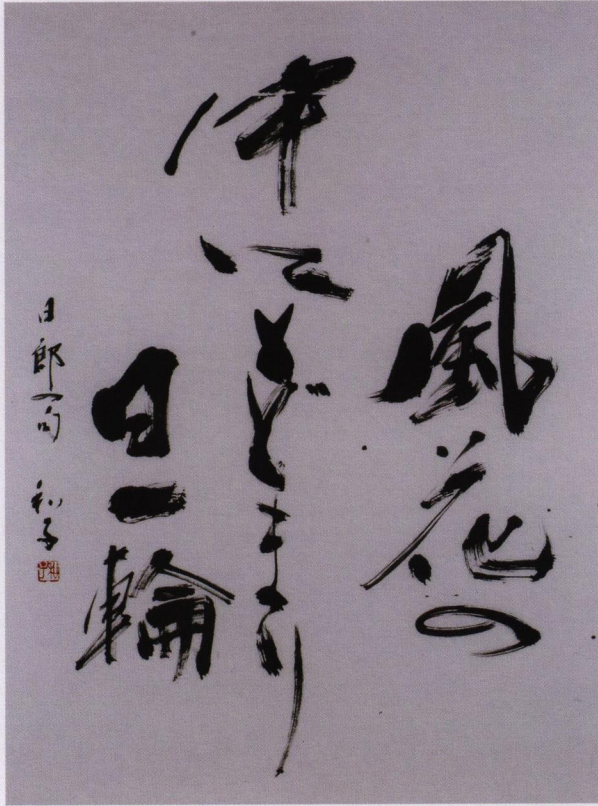 風花の
中にとどまり
日一輪
日郎句 和子